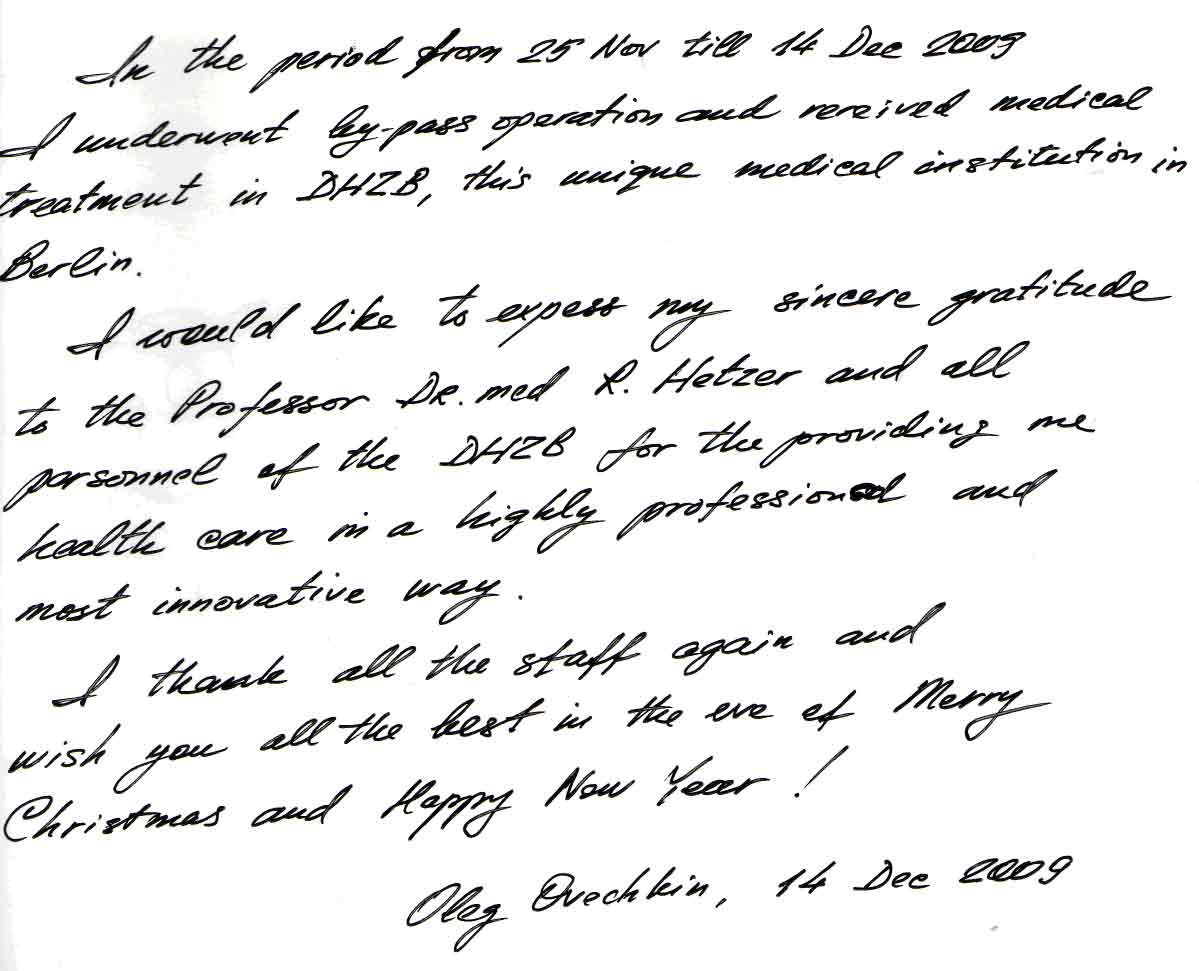 In the period from 25 Nov till 14 Dec 2009
I underwent by-pass operation and rereived medical
treatment in DHZB, this unique medical institution in
Berlin.
I would like to expess my sincere gratitude
to the Professor DR. med R. Hetzer and all
parsonnel of the DHZB for the providing me
health care in a highly professional and
most innovative way.
I thank all the staff again and
wish you all the best in the eve of Merry
Christmas and Happy New Year!
Oleg Ovechkin, 14 Dec 2009